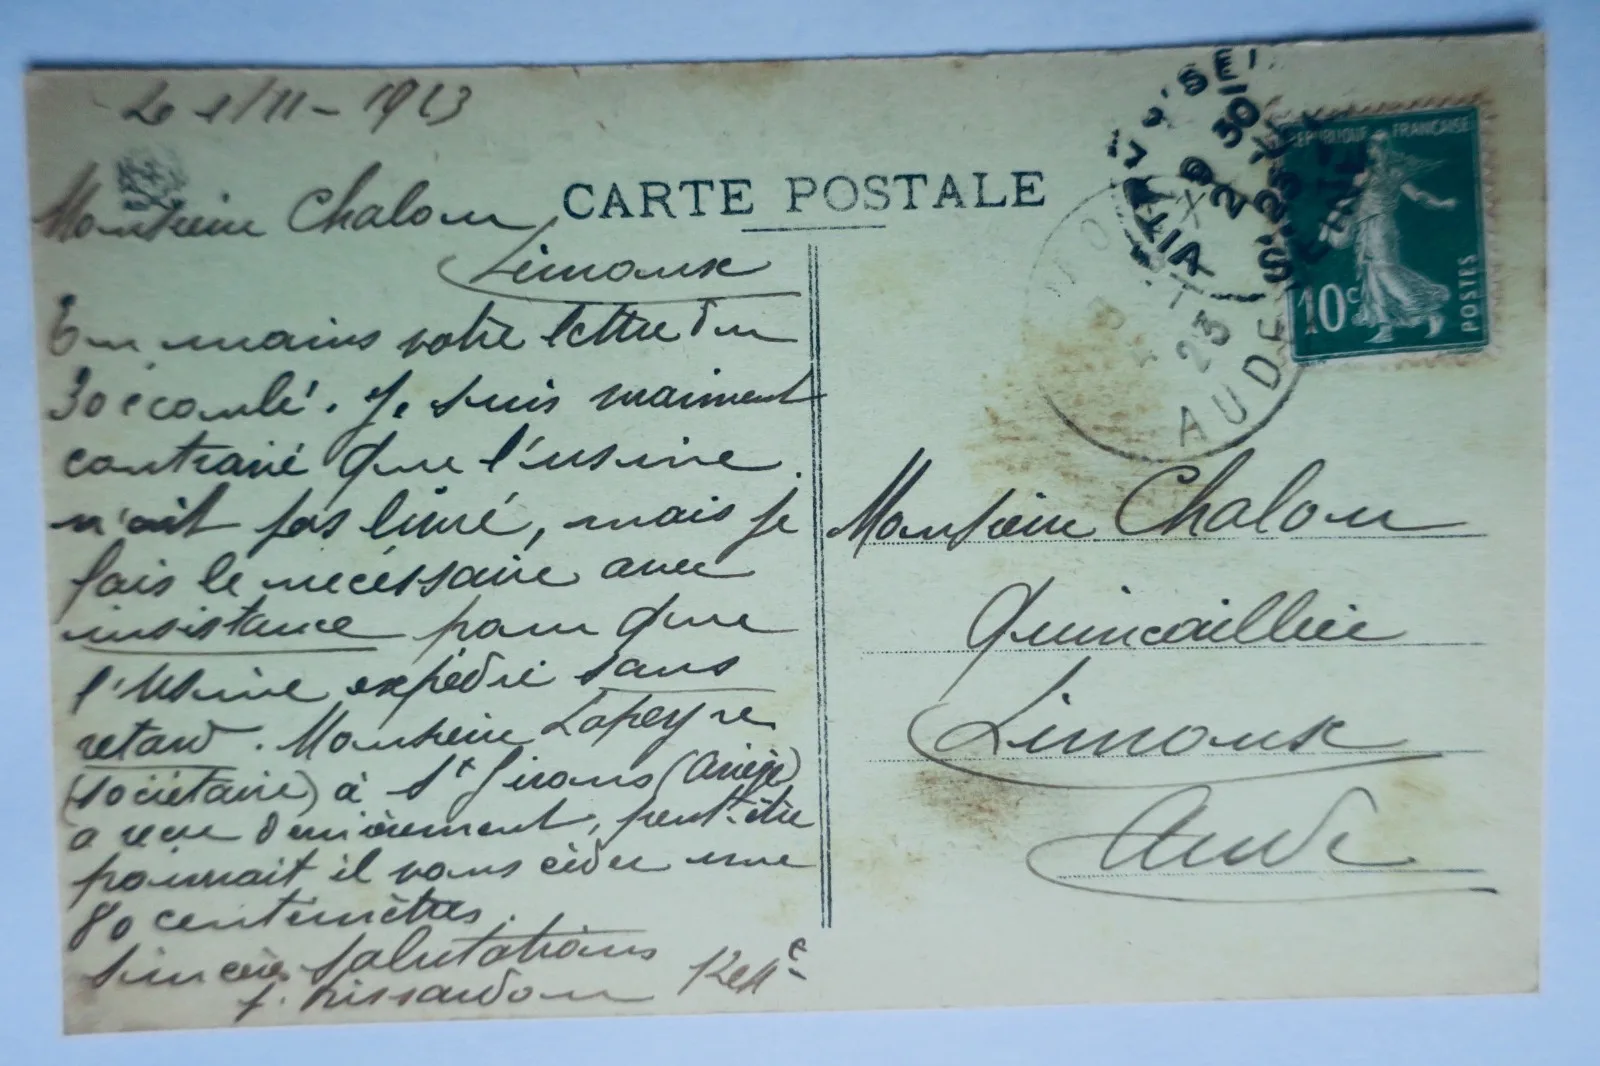 1913
Monsieur Chalou
Limoux
En mains votre lettre du
30 écoulé. Je suis vraiment
contrarié que l'usine
n'ait pas livré, mais je
fais le nécessaire avec
insistance pour que
l'usine expédie sans
retard. Monsieur Lapeyre
(sociétaire) à St Girons (Ariège)
a reçu dernièrement, peut-être
pourrait il vous céder une
80 centimètres.
Sincères salutations
CARTE POSTALE
REPUBLIQUE FRANÇAISE
10c
POSTES
23
AUDE
Monsieur Chalou
Quincaillier
Limoux
Aude